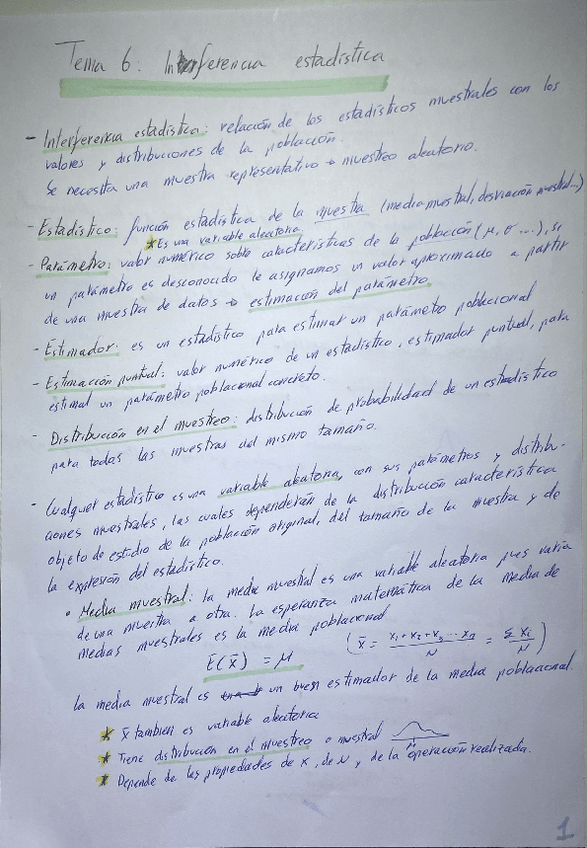 Tema 6: Interferencia estadística
- Interferencia estadística: relación de los estadísticos muestrales con los
valores y distribuciones de la población.
Se necesita una muestra representativo → muestreo aleatorio.
- Estadístico: función estadística de la muestra (media muestral, desviación muestral...)
* Es una variable aleatoria
- Parámetro: valor numérico sobre características de la población (μ, σ ...), si
un parámetro es desconocido le asignamos un valor aproximado a partir
de una muestra de datos → estimación del parámetro.
- Estimador: es un estadístico para estimar un parámetro poblacional
- Estimación puntual: valor numérico de un estadístico, estimador puntual, para
estimar un parámetro poblacional concreto.
- Distribución en el muestreo: distribución de probabilidad de un estadístico
para todas las muestras del mismo tamaño.
- Cualquier estadístico es una variable aleatoria, con sus parámetros y distribu-
ciones muestrales, las cuales dependerán de la distribución característica
objeto de estudio de la población original, del tamaño de la muestra y de
la expresión del estadístico.
• Media muestral: la media muestral es una variable aleatoria pues varía
de una muestra a otra. La esperanza matemática de la media de
medias muestrales es la media poblacional
E(x̄) = μ (x̄ = x₁+x₂+x₃...xₙ / N = Σ xᵢ / N)
la media muestral es un buen estimador de la media poblacional.
* x̄ también es variable aleatoria
* Tiene distribución en el muestreo o muestral
* Depende de las propiedades de x, de N y de la operación realizada.
1